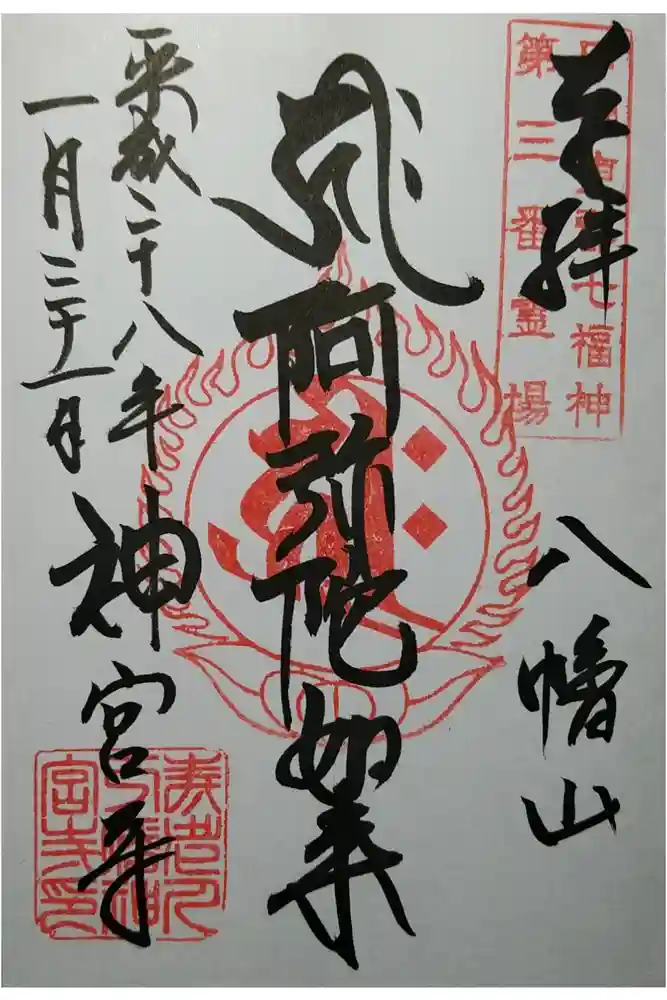 奉拝
七福神
第三番霊場
八幡山
阿弥陀如来
平成二十八年
一月三十一日
神宮寺
寿老人
宮寺印